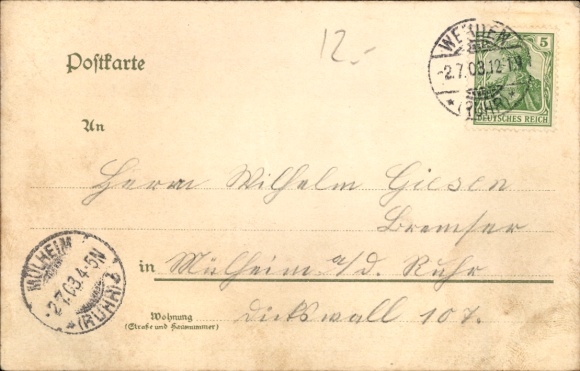 12.-
WERDEN
-2.7.03.12-1N
*(RUHR)*
5
DEUTSCHES REICH
Postkarte
An
Herrn Wilhelm Giesen
Bremser
in Mülheim a/d. Ruhr
Wohnung
(Straße und Hausnummer)
Dickswall 107.
MÜLHEIM
-2.7.03.4-5N
*(RUHR)